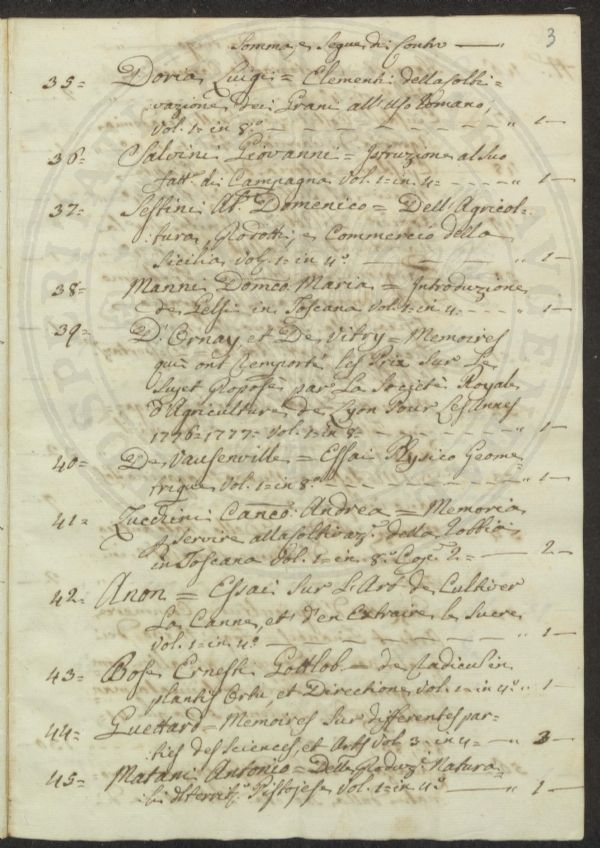 3
Somma, e Segue di Contro —
35= Doria Luigi = Elementi della Colti-
vazione dei Grani all'Uso Romano,
Vol. 1= in 8.º — — — — — — — " 1 —
36= Salvini Giovanni = Istruzione al Suo
Fatt.e di Campagna Vol. 1= in 4= - - - - " 1 —
37= Sestini Ab.e Domenico = Dell'Agricol-
tura, Prodotti, e Commercio della
Sicilia, Vol. 1= in 4.º — — — — " 1 —
38= Manni Domco. Maria = Introduzione
de Gelsi in Toscana Vol. 1= in 4= - - - " 1 —
39= D'Ornay et De Vitry = Memoires
qui ont remporté les Prix Sur Le
Sujet proposé par La Societé Royale
d'Agriculture de Lyon Pour Les Annes
1776=1777= Vol. 1= in 8= - - - - - - " 1 —
40= De Vausenville = Essai Physico Geome-
trique Vol. 1= in 8.º — — — — " 1 —
41= Zucchini Canco. Andrea = Memoria
p servire alla Coltivaz.e della Robbia
in Toscana Vol. 1= in 8.º Cop.e 2= — 2 —
42= Anon = Essai Sur L'Art de Cultiver
La Canne, et d'en Extraire le Sucre
Vol. 1= in 4.º — — — — — " 1 —
43= Bose Ernesti Gottlob = de Radicul in
plantis Ortu, et Directione Vol. 1= in 4.º " 1 —
44= Guettard = Memoires Sur differentes par-
ties des Sciences, et Arts Vol. 3= in 4= — " 3 —
45= Matani Antonio = Delle Produz.i Natura-
li del Territ.º Pistojese Vol. 1= in 4.º — " 1 —